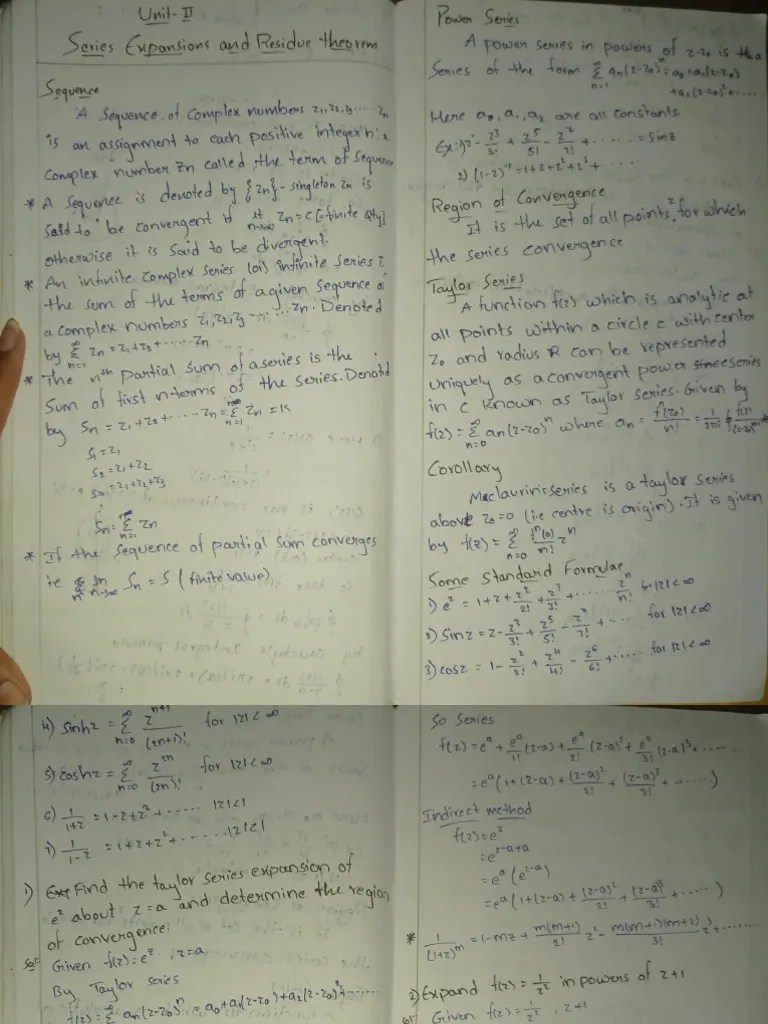 Unit-II
Series Expansions and Residue theorem
Sequence
A Sequence of Complex numbers z₁,z₂,z₃.....zₙ
is an assignment to each positive integer n: a
Complex number zn called the term of Sequence
* A Sequence is denoted by {zn} - singleton zn is
said to be convergent if lt n→∞ zn = c [-finite qty]
otherwise it is said to be divergent.
* An infinite complex series (or) infinite series is
the sum of the terms of a given sequence of
a complex numbers z₁,z₂,z₃.......zn. Denoted
by Σ_{n=1}^{∞} zn = z₁+z₂+......zn
* The nth partial sum of a series is the
Sum of first n-terms of the series. Denoted
by Sn = z₁+z₂+.....zn = Σ_{n=1} zn = K
S₁=z₁
S₂=z₁+z₂
=z₁+z₂+z₃
⋮
Sn = Σ_{n=1} zn
* If the Sequence of partial sum converges
ie lim n→∞ Sn = S (finite value)
Power Series
A power series in powers of z-z₀ is the
Series of the form Σ_{n=1}^{∞} an(z-z₀)ⁿ = a₀+a₁(z-z₀)
+a₂(z-z₀)²+....
Here a₀, a₁, a₂ are all constants
Ex:-1) z - z³/3! + z⁵/5! - z⁷/7! + ...... = sinz
2) (1-z)⁻¹ = 1+z+z²+z³+ .....
Region of Convergence
It is the set of all points z for which
the series convergence
Taylor Series
A function f(z) which is analytic at
all points within a circle c with center
z₀ and radius R can be represented
uniquely as a convergent power series
in c known as Taylor series. Given by
f(z) = Σ_{n=0}^{∞} an(z-z₀)ⁿ where an = fⁿ(z₀)/n! = 1/2πi ∮
Corollary
Maclaurin's series is a taylor series
z₀=0 (i.e centre is origin). It is given
by f(z) = Σ_{n=0}^{∞} fⁿ(0)/n! zⁿ
Some Standard Formulae
1) e^z = 1+z+z²/2!+z³/3!+....... zⁿ/n! for |z|<∞
2) Sinz = z - z³/3! + z⁵/5! - z⁷/7! + ... for |z|<∞
3) cosz = 1 - z²/2! + z⁴/4! - z⁶/6! + ..... for |z|<∞
4) sinhz = Σ_{n=0}^{∞} z^{n+1}/(2n+1)! for |z|<∞
5) coshz = Σ_{n=0}^{∞} z^{2n}/(2n)! for |z|<∞
6) 1/(1+z) = 1-z+z²+...... |z|<1
7) 1/(1-z) = 1+z+z²+...... |z|<1
1) Find the taylor series expansion of
e^z about z=a and determine the region
of convergence.
Sol:- Given f(z)=e^z, z=a
By Taylor series
f(z) = Σ_{n=0}^{∞} an(z-z₀)ⁿ = a₀+a₁(z-z₀)+a₂(z-z₀)²+......
So Series
f(z) = e^a + e^a/1!(z-a) + e^a/2!(z-a)² + e^a/3!(z-a)³+.....
= e^a(1+(z-a)+(z-a)²/2!+(z-a)³/3!+......)
Indirect method
f(z)=e^z
=e^{z-a+a}
=e^a(e^{z-a})
=e^a(1+(z-a)+(z-a)²/2!+(z-a)³/3!+.....)
* 1/(1+z)^m = 1-mz+m(m+1)/2! z² - m(m+1)(m+2)/3! z³+.......
2) Expand f(z)=1/z² in powers of z+1
Sol:- Given f(z)=1/z², z+1